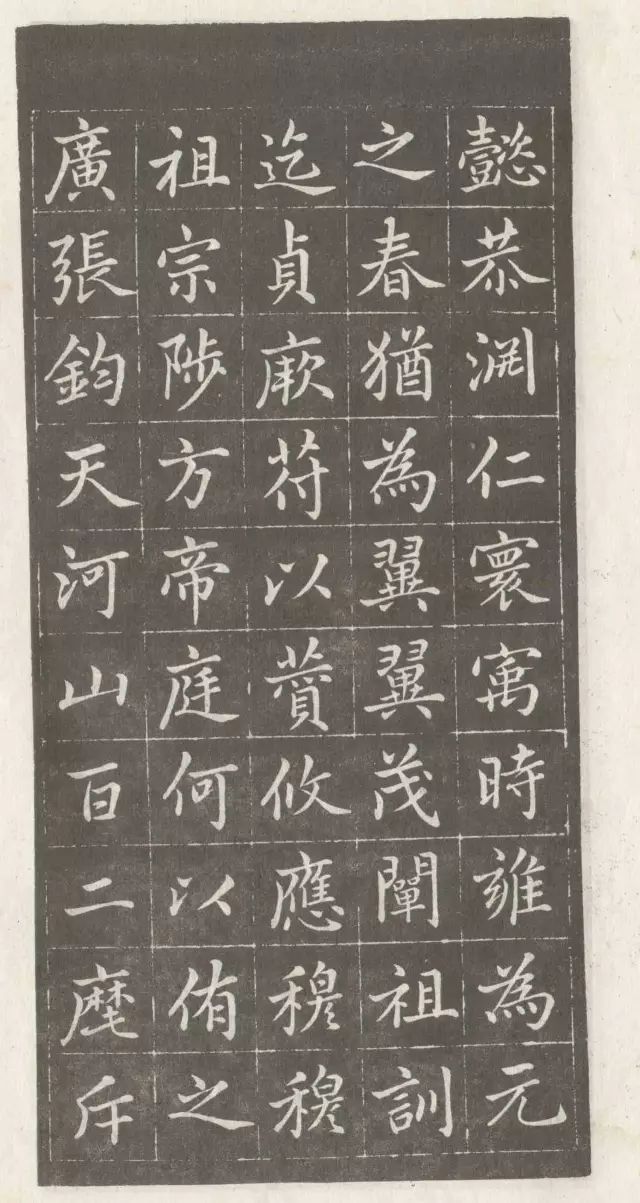 懿恭淵仁寰寓時雍為元
之春猶為翼翼茂闡祖訓
迄貞厥苻以賛攸應穆穆
祖宗陟方帝庭何以侑之
廣張鈞天河山百二麾斥